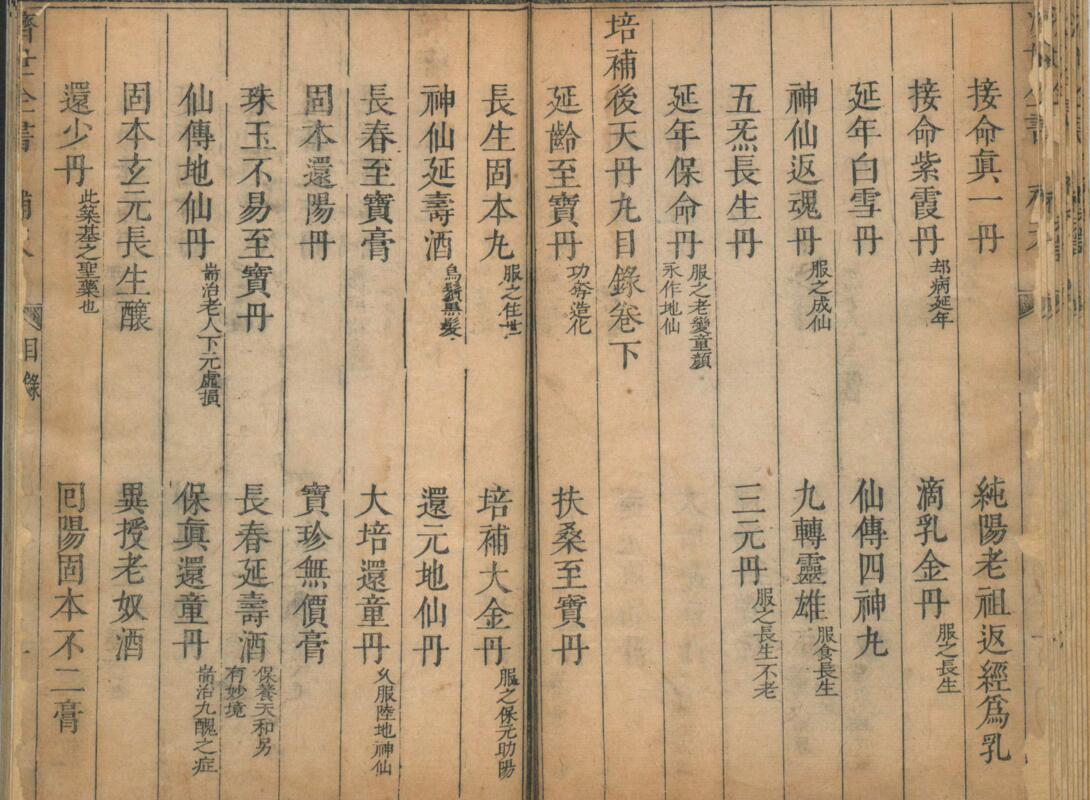 接命眞一丹 純陽老祖返經爲乳
接命紫霞丹 却病延年 滴乳金丹 服之長生
延年白雪丹 仙傳四神丸
神仙返魂丹 服之成仙 九轉靈雄 服食長生
五炁長生丹 三元丹 服之長生不老
延年保命丹 服之老變童顏永作地仙
培補後天丹丸目錄卷下
延齡至寶丹 功奪造化 扶桑至寶丹
長生固本丸 服之住世 培補大金丹 服之保元助陽
神仙延壽酒 烏鬚黑髮 還元地仙丹
長春至寶膏 大培還童丹 乆服陸地神仙
固本還陽丹 寶珍無價膏
珠玉不易至寶丹 長春延壽酒 保養天和另有妙境
仙傳地仙丹 耑治老人下元虛損 保眞還童丹 耑治九醜之症
固本玄元長生釀 異授老奴酒
還少丹 此築基之聖藥也 囘陽固本不二膏
濟世全書 目錄